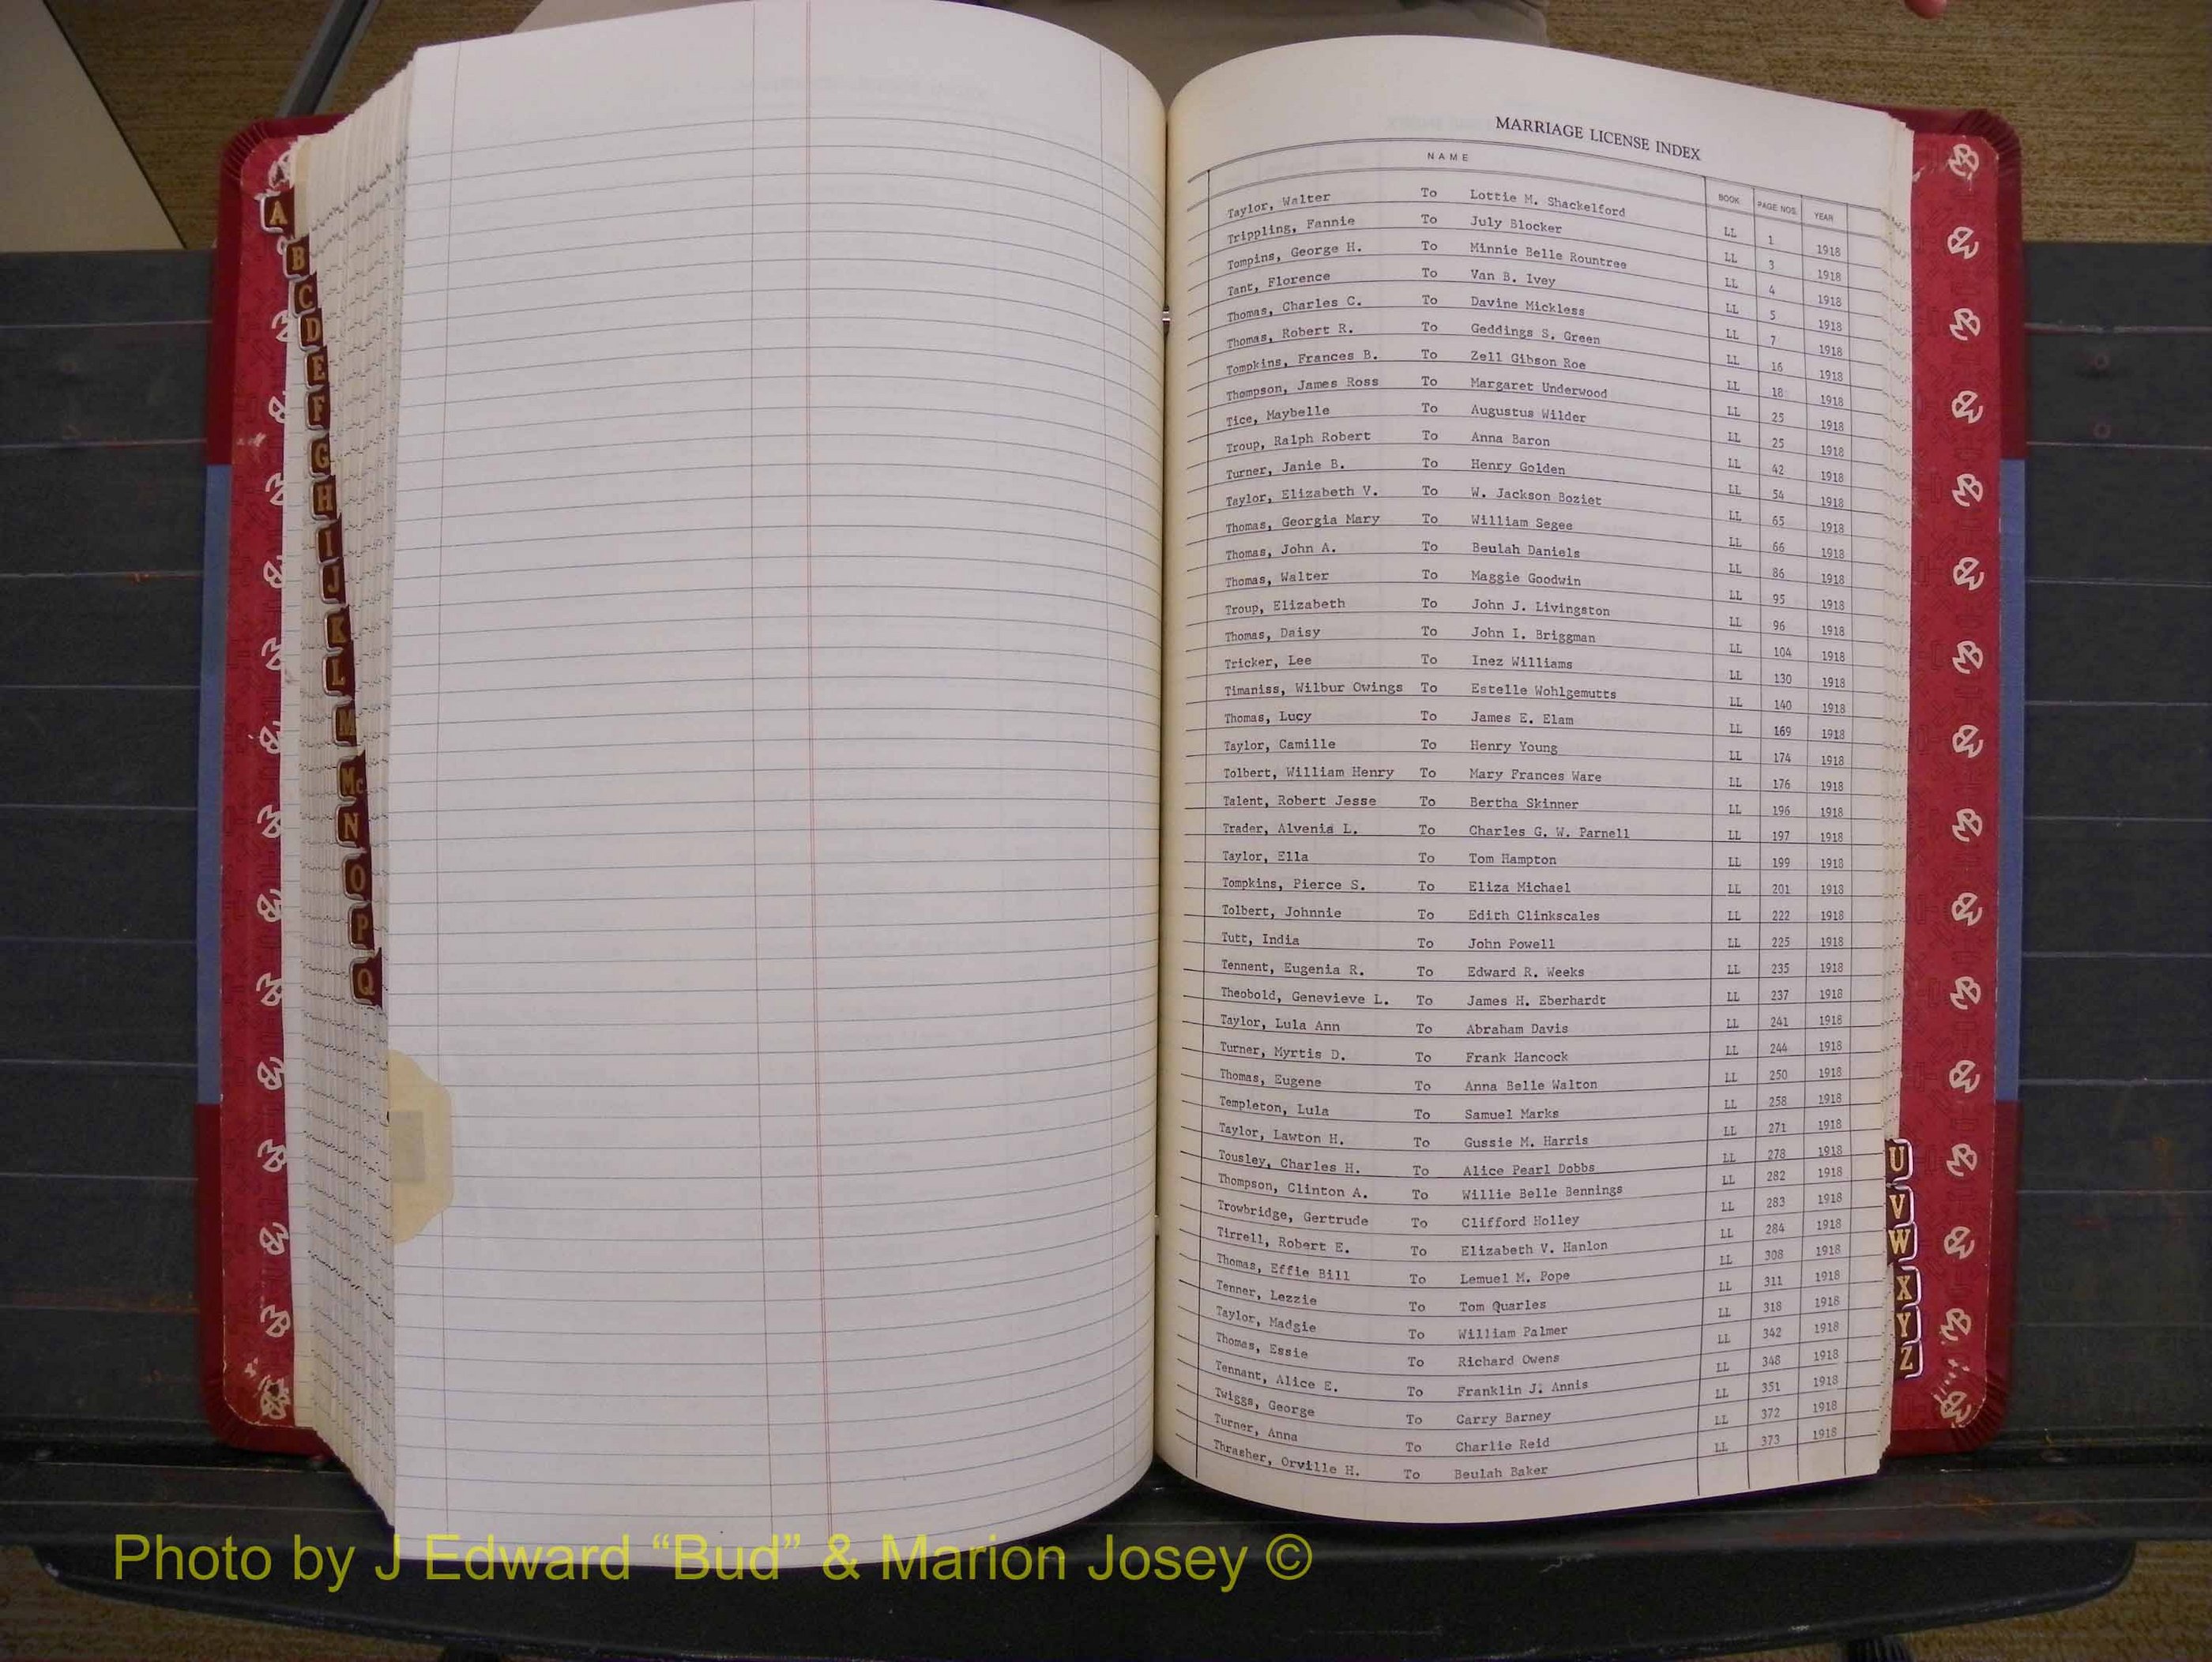 MARRIAGE LICENSE INDEX
NAME BOOK PAGE NOS. YEAR
Taylor, Walter To Lottie M. Shackelford LL 1 1918
Trippling, Fannie To July Blocker LL 3 1918
Tompins, George H. To Minnie Belle Rountree LL 4 1918
Tant, Florence To Van B. Ivey LL 5 1918
Thomas, Charles C. To Davine Mickless LL 7 1918
Thomas, Robert R. To Geddings S. Green LL 16 1918
Tompkins, Frances B. To Zell Gibson Roe LL 18 1918
Thompson, James Ross To Margaret Underwood LL 25 1918
Tice, Maybelle To Augustus Wilder LL 25 1918
Troup, Ralph Robert To Anna Baron LL 42 1918
Turner, Janie B. To Henry Golden LL 54 1918
Taylor, Elizabeth V. To W. Jackson Boziet LL 65 1918
Thomas, Georgia Mary To William Segee LL 66 1918
Thomas, John A. To Beulah Daniels LL 86 1918
Thomas, Walter To Maggie Goodwin LL 95 1918
Troup, Elizabeth To John J. Livingston LL 96 1918
Thomas, Daisy To John I. Briggman LL 104 1918
Tricker, Lee To Inez Williams LL 130 1918
Timaniss, Wilbur Owings To Estelle Wohlgemutts LL 140 1918
Thomas, Lucy To James E. Elam LL 169 1918
Taylor, Camille To Henry Young LL 174 1918
Tolbert, William Henry To Mary Frances Ware LL 176 1918
Talent, Robert Jesse To Bertha Skinner LL 196 1918
Trader, Alvenia L. To Charles G. W. Parnell LL 197 1918
Taylor, Ella To Tom Hampton LL 199 1918
Tompkins, Pierce S. To Eliza Michael LL 201 1918
Tolbert, Johnnie To Edith Clinkscales LL 222 1918
Tutt, India To John Powell LL 225 1918
Tennent, Eugenia R. To Edward R. Weeks LL 235 1918
Theobold, Genevieve L. To James H. Eberhardt LL 237 1918
Taylor, Lula Ann To Abraham Davis LL 241 1918
Turner, Myrtis D. To Frank Hancock LL 244 1918
Thomas, Eugene To Anna Belle Walton LL 250 1918
Templeton, Lula To Samuel Marks LL 258 1918
Taylor, Lawton H. To Gussie M. Harris LL 271 1918
Tousley, Charles H. To Alice Pearl Dobbs LL 278 1918
Thompson, Clinton A. To Willie Belle Bennings LL 282 1918
Trowbridge, Gertrude To Clifford Holley LL 283 1918
Tirrell, Robert E. To Elizabeth V. Hanlon LL 284 1918
Thomas, Effie Bill To Lemuel M. Pope LL 308 1918
Tenner, Lezzie To Tom Quarles LL 311 1918
Taylor, Madgie To William Palmer LL 318 1918
Thomas, Essie To Richard Owens LL 342 1918
Tennant, Alice E. To Franklin J. Annis LL 348 1918
Twiggs, George To Carry Barney LL 351 1918
Turner, Anna To Charlie Reid LL 372 1918
Thrasher, Orville H. To Beulah Baker LL 373 1918
A
B
C
D
E
F
G
H
I
J
K
L
M
Mc
N
O
P
Q
U
V
W
X
Y
Z
Photo by J Edward “Bud” & Marion Josey ©